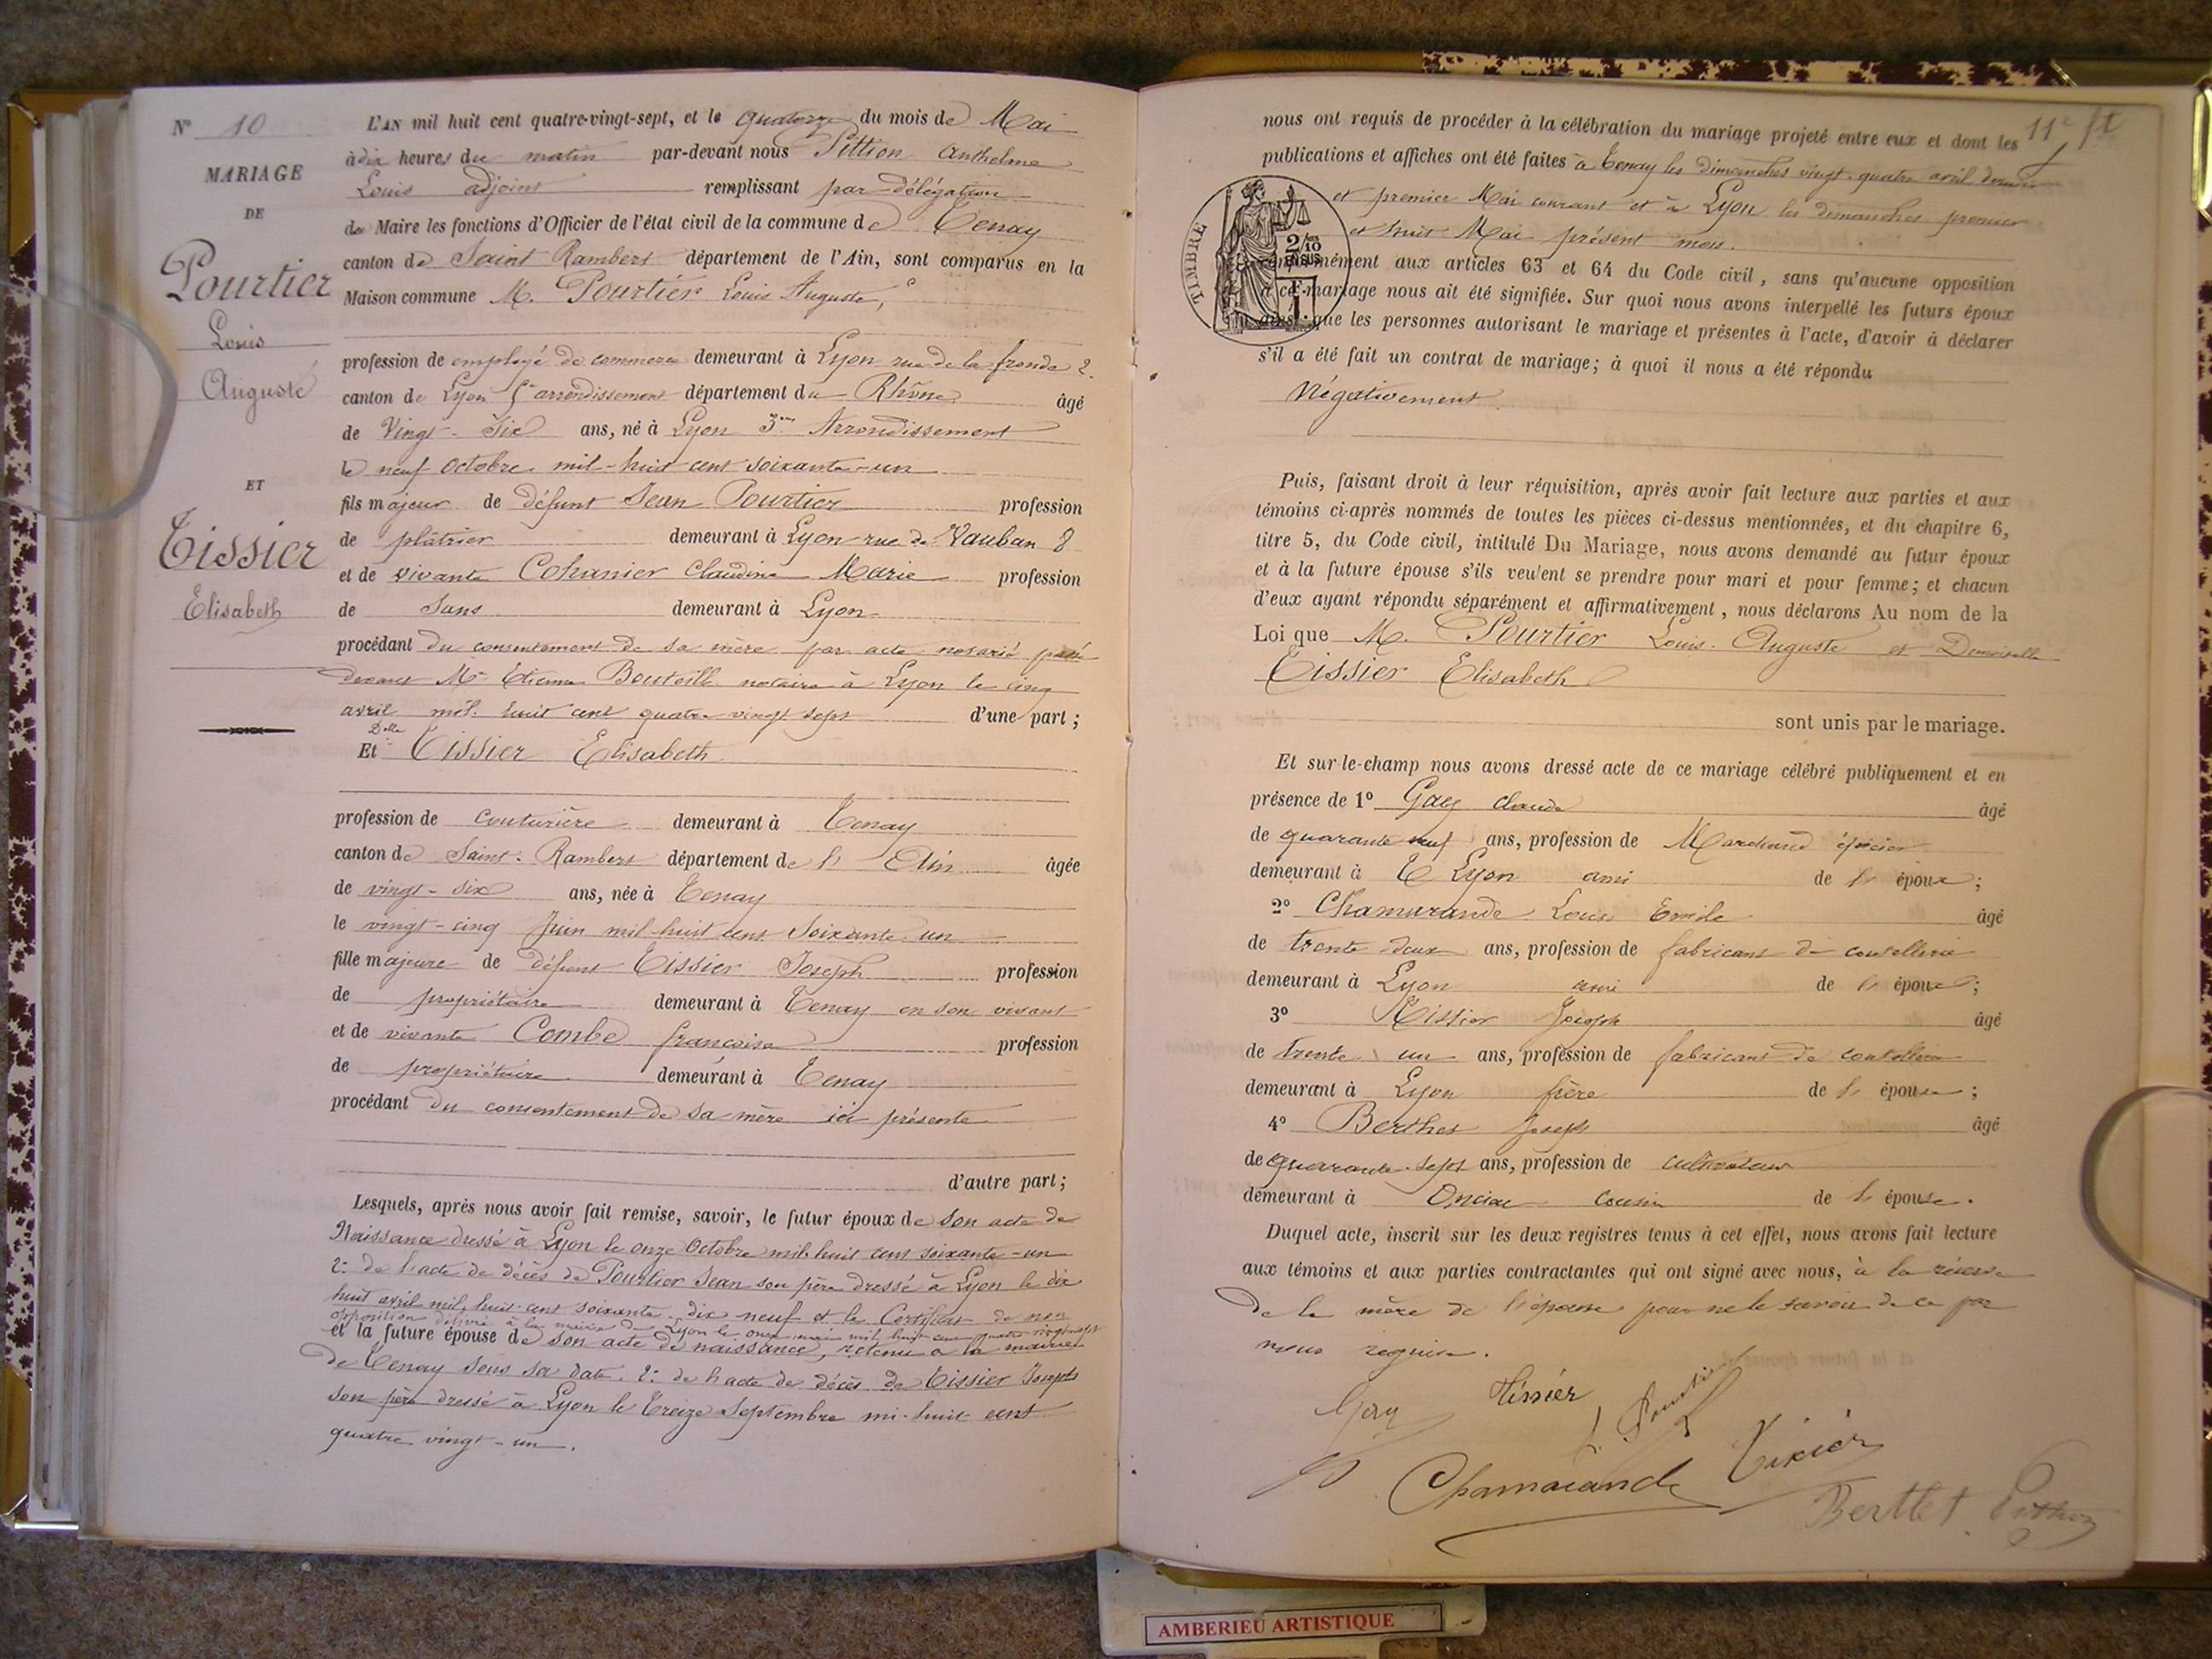 N° 10
MARIAGE
DE
Pourtier
Louis
Auguste
ET
Tissier
Elisabeth
L'AN mil huit cent quatre-vingt-sept, et le quatorze du mois de Mai
à dix heures du matin par-devant nous Pittion Anthelme
Louis adjoint remplissant par délégation
de Maire les fonctions d'Officier de l'état civil de la commune de Tenay
canton de Saint Rambert département de l'Ain, sont comparus en la
Maison commune M. Pourtier Louis Auguste,
profession de employé de commerce demeurant à Lyon rue de la fronde 2.
canton de Lyon 5e arrondissement département du Rhône âgé
de Vingt-Six ans, né à Lyon 3me Arrondissement
le neuf Octobre mil-huit cent soixante-un
fils majeur de défunt Jean Pourtier profession
de plâtrier demeurant à Lyon rue de Vauban 8
et de vivante Cohanier Claudine Marie profession
de Sans demeurant à Lyon
procédant du consentement de sa mère par acte notarié passé
devant Me Etienne Bouteille notaire à Lyon le cinq
avril mil huit cent quatre vingt sept d'une part ;
Delle
Et Tissier Elisabeth
profession de Couturière demeurant à Tenay
canton de Saint-Rambert département de l'Ain âgée
de vingt-six ans, née à Tenay
le vingt-cinq Juin mil-huit cent Soixante un
fille majeure de défunt Tissier Joseph profession
de propriétaire demeurant à Tenay en son vivant
et de vivante Combe françoise profession
de propriétaire demeurant à Tenay
procédant du consentement de sa mère ici présente
d'autre part ;
Lesquels, après nous avoir fait remise, savoir, le futur époux de son acte de
Naissance dressé à Lyon le onze Octobre mil huit cent soixante-un
2° de l'acte de décès de Pourtier Jean son père dressé à Lyon le dix
huit avril mil huit cent soixante-dix neuf et le Certificat de non
opposition délivré à la mairie de Lyon le onze mai mil huit cent quatre vingt sept
et la future épouse de son acte de naissance, retenu à la mairie
de Tenay sous sa date. 2° de l'acte de décès de Tissier Joseph
son père dressé à Lyon le Treize Septembre mi-huit cent
quatre vingt-un.
11e ft
nous ont requis de procéder à la célébration du mariage projeté entre eux et dont les
publications et affiches ont été faites à Tenay les dimanches vingt-quatre avril dernier
et premier Mai courant et à Lyon les dimanches premier
et huit Mai présent mois.
TIMBRE
2/10
EN SUS
conformément aux articles 63 et 64 du Code civil, sans qu'aucune opposition
à ce mariage nous ait été signifiée. Sur quoi nous avons interpellé les futurs époux
ainsi que les personnes autorisant le mariage et présentes à l'acte, d'avoir à déclarer
s'il a été fait un contrat de mariage ; à quoi il nous a été répondu
Négativement.
Puis, faisant droit à leur réquisition, après avoir fait lecture aux parties et aux
témoins ci-après nommés de toutes les pièces ci-dessus mentionnées, et du chapitre 6,
titre 5, du Code civil, intitulé Du Mariage, nous avons demandé au futur époux
et à la future épouse s'ils veulent se prendre pour mari et pour femme ; et chacun
d'eux ayant répondu séparément et affirmativement, nous déclarons Au nom de la
Loi que M. Pourtier Louis-Auguste et Demoiselle
Tissier Elisabeth
sont unis par le mariage.
Et sur-le-champ nous avons dressé acte de ce mariage célébré publiquement et en
présence de 1° Gay Claude âgé
de quarante neuf ans, profession de Marchand épicier
demeurant à Lyon ami de l' époux ;
2° Chamarande Louis Emile âgé
de trente deux ans, profession de fabricant de coutellerie
demeurant à Lyon ami de l' époux ;
3° Tissier Joseph âgé
de trente un ans, profession de fabricant de coutellerie
demeurant à Lyon frère de l' épouse ;
4° Berthet Joseph âgé
de quarante-sept ans, profession de cultivateur
demeurant à Oncieu cousin de l' épouse.
Duquel acte, inscrit sur les deux registres tenus à cet effet, nous avons fait lecture
aux témoins et aux parties contractantes qui ont signé avec nous, à la réserve
de la mère de l'épouse pour ne le savoir de ce par
nous requise.
Gay Tissier Pourtier
Chamarande Tixier
Berthet Pittion
AMBERIEU ARTISTIQUE